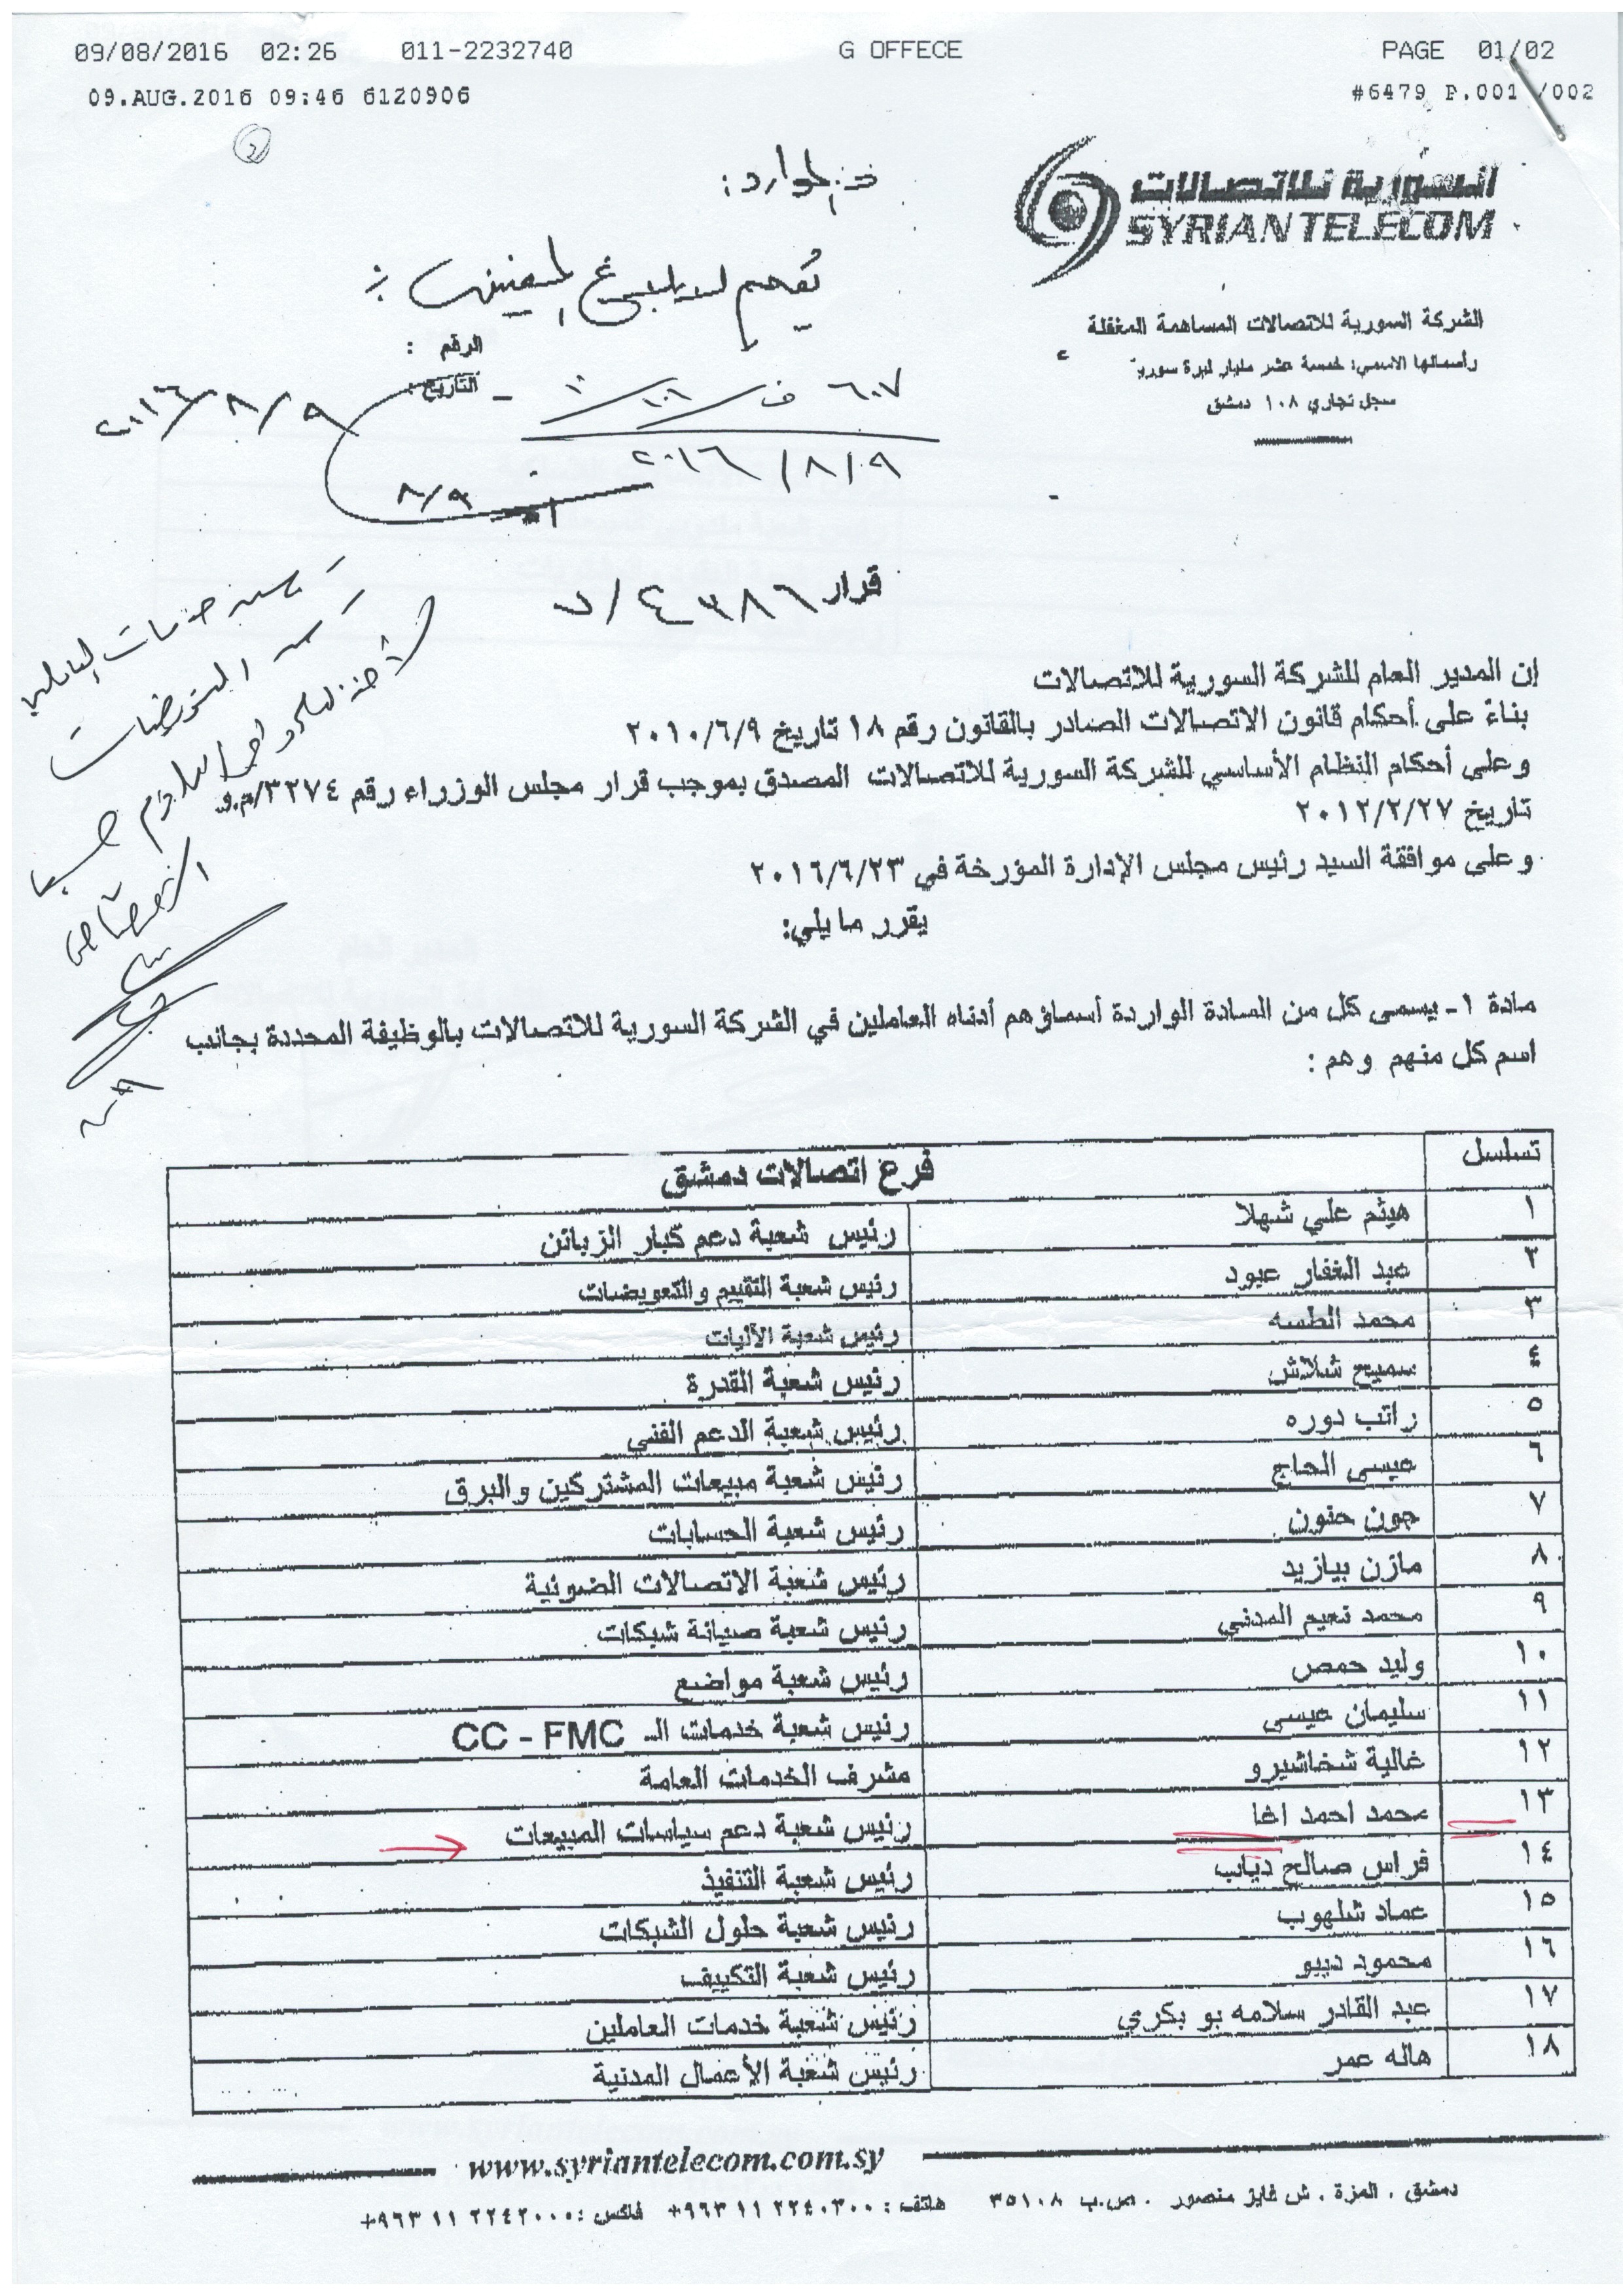 09/08/2016 02:26 011-2232740 G OFFECE PAGE 01/02
09.AUG.2016 09:46 6120906 #6479 P.001 /002
السورية للاتصالات
SYRIAN TELECOM
الشركة السورية للاتصالات المساهمة المغفلة
رأسمالها الاسمي: خمسة عشر مليار ليرة سورية
سجل تجاري ١٠٨ دمشق
الرقم :
التاريخ : ٢٠١٦/٨/٩
٦٠٧
٢٠١٦/٨/٩
٨/٩
قرار ٤٣٨٦/
إن المدير العام للشركة السورية للاتصالات
بناءً على أحكام قانون الاتصالات الصادر بالقانون رقم ١٨ تاريخ ٢٠١٠/٦/٩
وعلى أحكام النظام الأساسي للشركة السورية للاتصالات المصدق بموجب قرار مجلس الوزراء رقم ٣٢٧٤/م.و
تاريخ ٢٠١٢/٢/٢٧
وعلى موافقة السيد رئيس مجلس الإدارة المؤرخة في ٢٠١٦/٦/٢٣
يقرر ما يلي:
مادة ١- يسمى كل من السادة الواردة أسماؤهم أدناه العاملين في الشركة السورية للاتصالات بالوظيفة المحددة بجانب
اسم كل منهم وهم :
تسلسل فرع اتصالات دمشق
١ هيثم علي شهلا رئيس شعبة دعم كبار الزبائن
٢ عبد الغفار عبود رئيس شعبة التقييم والتعويضات
٣ محمد الطسه رئيس شعبة الآليات
٤ سميح شلاش رئيس شعبة القدرة
٥ راتب دوره رئيس شعبة الدعم الفني
٦ عيسى الحاج رئيس شعبة مبيعات المشتركين والبرق
٧ جون حنون رئيس شعبة الحسابات
٨ مازن بيازيد رئيس شعبة الاتصالات الضوئية
٩ محمد نعيم المدني رئيس شعبة صيانة شبكات
١٠ وليد حمص رئيس شعبة مواضع
١١ سليمان عيسى رئيس شعبة خدمات الـ CC - FMC
١٢ غالية شخاشيرو مشرف الخدمات العامة
١٣ محمد احمد اغا رئيس شعبة دعم سياسات المبيعات
١٤ فراس صالح دياب رئيس شعبة التنفيذ
١٥ عماد شلهوب رئيس شعبة حلول الشبكات
١٦ محمود ديبو رئيس شعبة التكييف
١٧ عبد القادر سلامه بو بكري رئيس شعبة خدمات العاملين
١٨ هاله عمر رئيس شعبة الأعمال المدنية
www.syriantelecom.com.sy
دمشق . المزة . ش فايز منصور . ص.ب ٣٥١٠٨ هاتف : ٢٢٤٠٣٠٠ ١١ ٩٦٣+ فاكس : ٢٢٤٢٠٠٠ ١١ ٩٦٣+